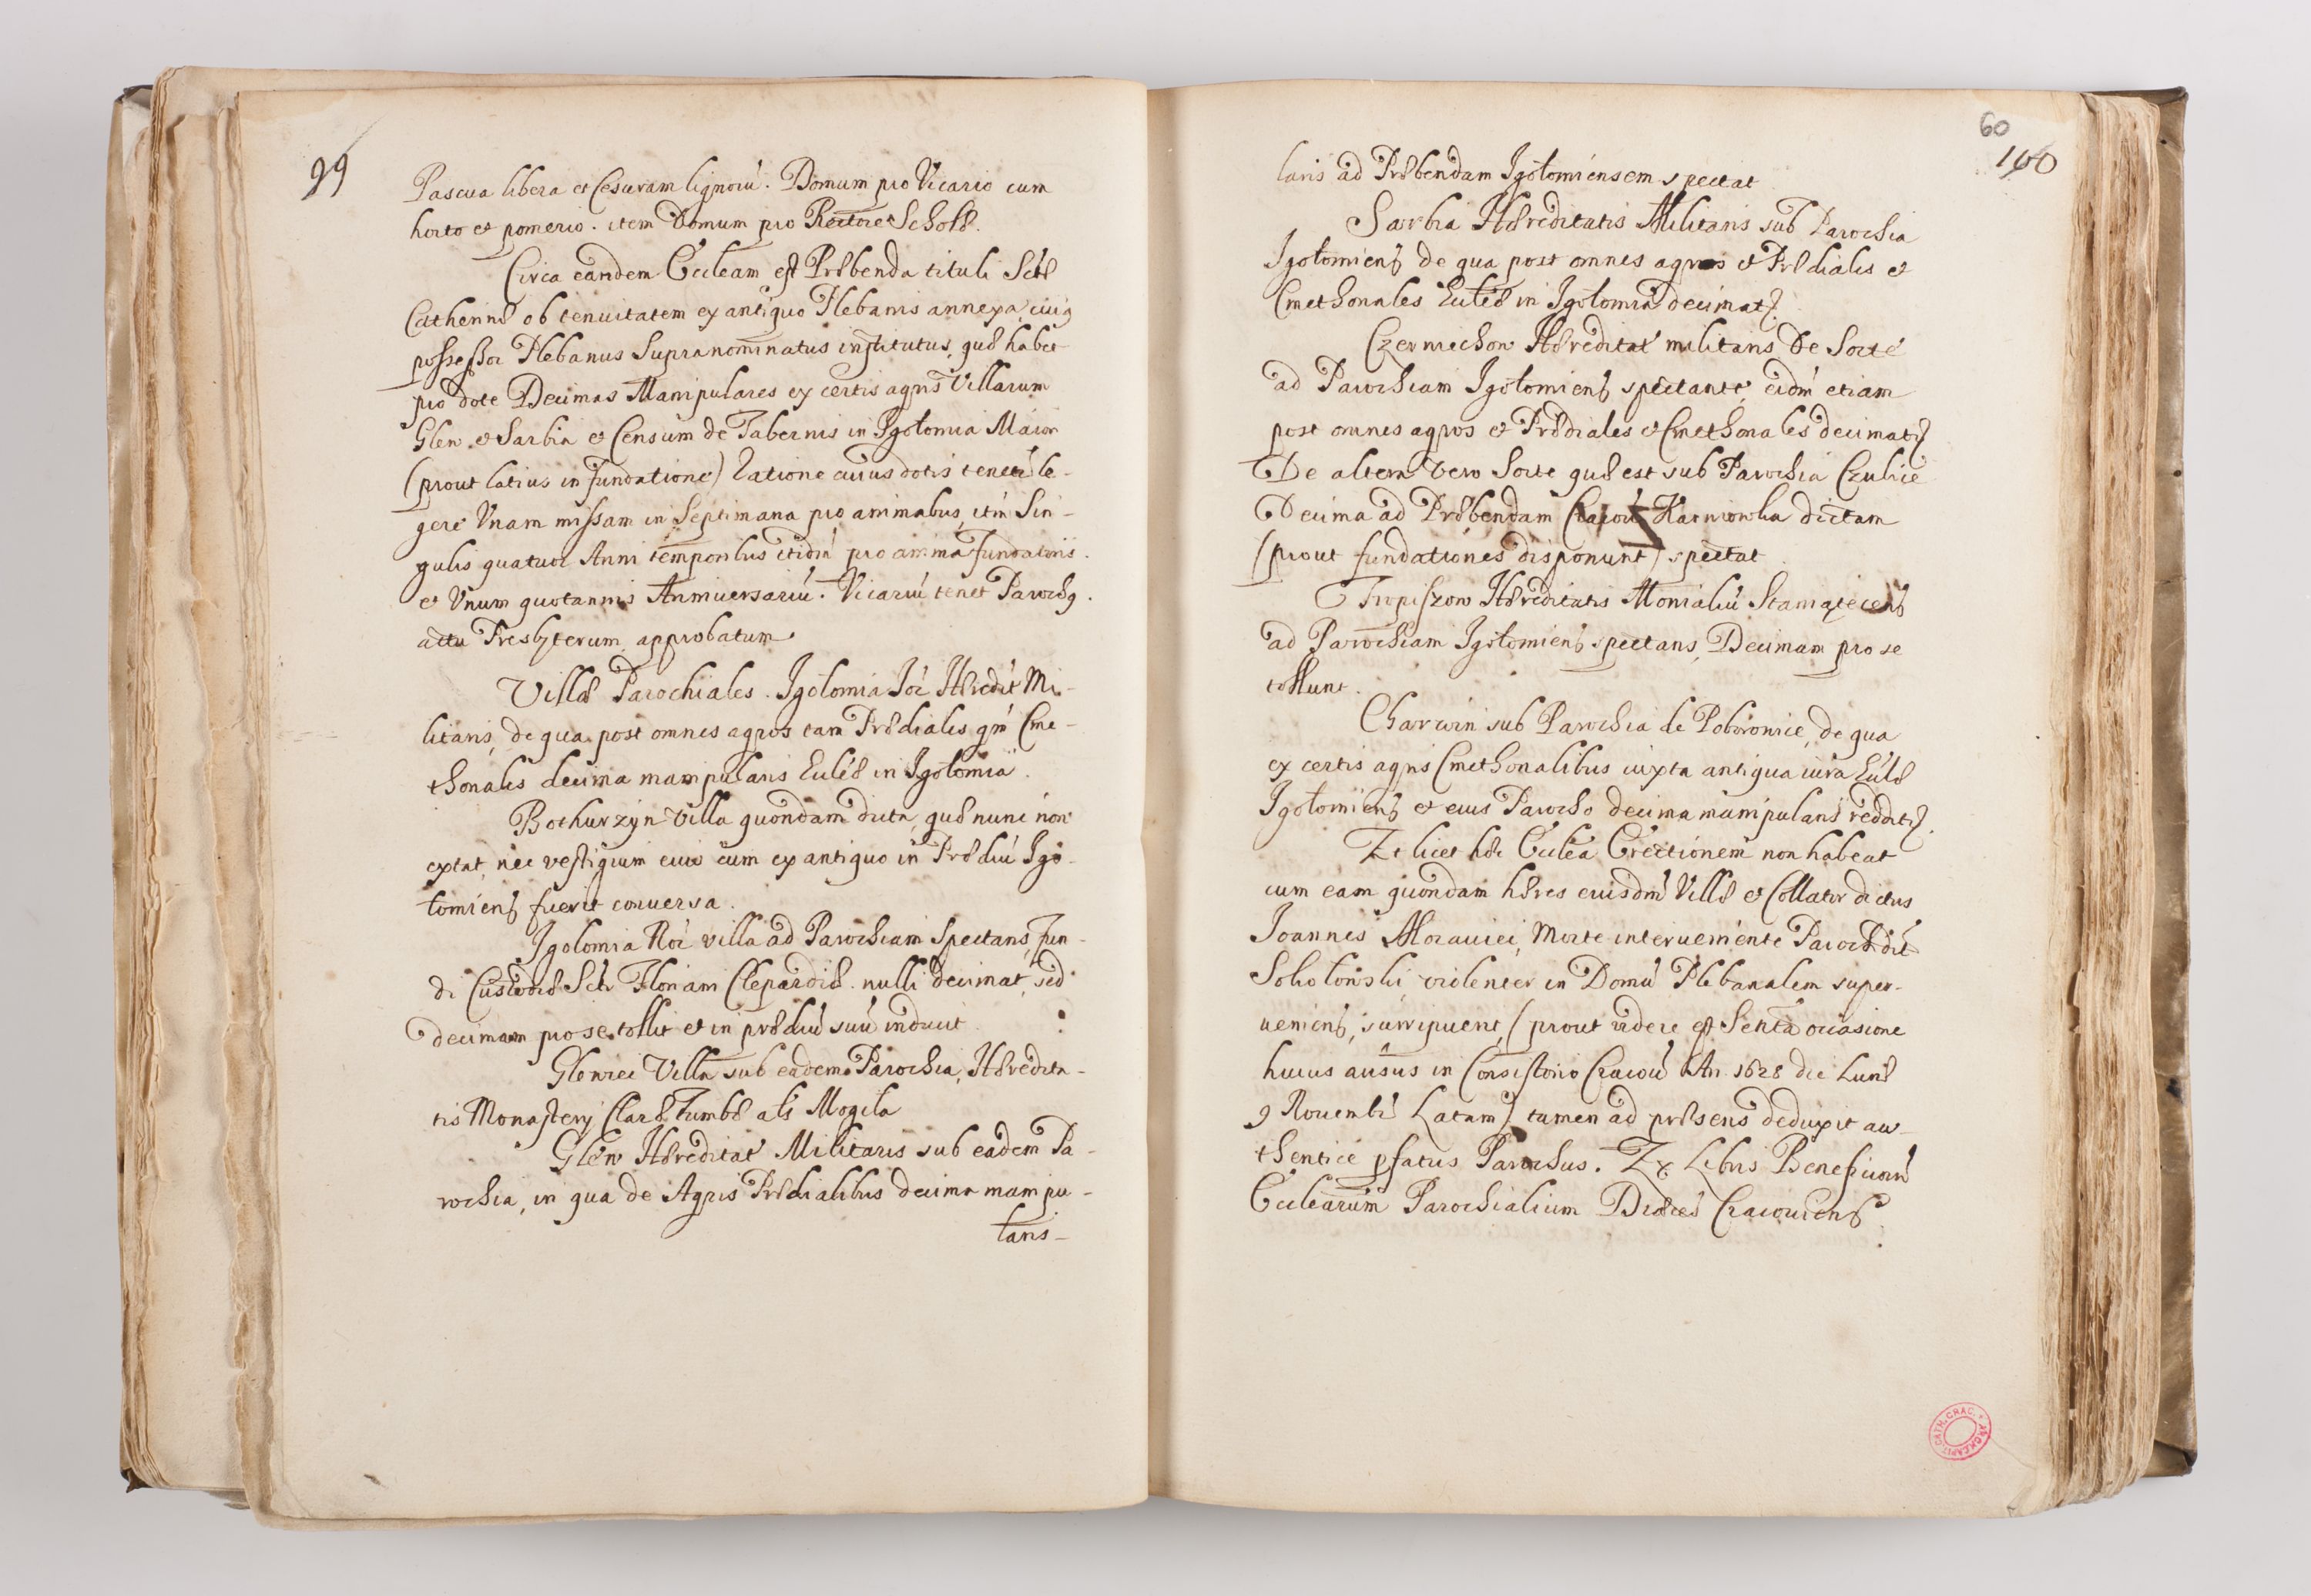 99
Pascua libera et Cesuram lignorú. Domum pro Vicario cum
horto et pomerio. item Domum pro Rectore Scholæ.
Circa eandem Eccleam est Præbenda tituli Sctæ
Catherinæ ob tenuitatem ex antiquo Plebanis annexa, cui9
possessor Plebanus Supranominatus institutus, quæ habet
pro dote Decimas Manipulares ex certis agris Villarum
Glew et Sarbia et Censum de Tabernis in Igołomia Maiori
(prout latius in fundatione) Ratione cuius dotis tenetú le-
gere Vnam missam in Septimana pro animabus, itm Sin-
gulis quatuor Anni temporibus itidm pro anima fundatoris.
et Vnum quotannis Anniuersariú. Vicariú tenet Paroch9.
actu Presbyterum approbatum.
Villæ Parochiales. Igolomia Hæredit Mi-
litaris, de qua post omnes agros tam Prædiales qm Cme-
thonales decima manipularis Eccleæ in Igołomia.
Bochurzyn Villa quondam dicta, quæ nunc non
extat, nec vestigium eius cum ex antiquo in Prædiú Igo-
łomiens fuerit conuersa.
Igolomia villa ad Parochiam Spectans, fun-
di Custodiæ Scti Floriani Clepardiæ. nulli decimat, sed
decimam pro se tollit et in prædiú suú inducit
Glewiec Villa sub eadem Parochia, Hæredita-
tis Monastery Claræ Tumbæ als Mogiła
Glew Hæreditat Militaris sub eadem Pa-
rochia, in qua de Agris Prædialibus decima manipu-
laris-
60
100
laris ad Præbendam Igołomiensem spectat
Sarbia Hæreditatis Militaris sub Parochia
Igołomiens de qua post omnes agros et Prædiales et
Cmethonales Eccleæ in Igołomia decimat.
Czernichow Hæreditat militaris De Sorte
ad Parochiam Igołomiens spectante, eidm etiam
post omnes agros et Prædiales et Cmethonales decimat
De altera vero Sorte quæ est sub Parochia Czulice
Decima ad Præbendam Cracou Karniowska dictam
(prout fundationes disponunt) spectat
Tropiszow Hæreditatis Monialiú Staniątecens
ad Parochiam Igołomiens spectans, Decimam pro se
tollunt.
Charwin sub Parochia de Poborowice, de qua
ex certis agris Cmethonalibus iuxta antiqua iura Eccleæ
Igołomiens et eius Parocho decima manipularis reddit.
Et licet hæc Ecclea Erectionem non habeat
cum eam quondam hæres eiusdm Villæ et Collator dictus
Ioannes Morauiec, Morte interueniente Parochi dit
Sokołowski violenter in Domú Plebanalem super-
ueniens, surripuerit, (prout videre est Senta occasione
huius ausûs in Consistorio Cracou An. 1628 die Lunæ
9 Nouemb Latam) tamen ad præsens deduxit au-
thentice pfatus Parochus. Ex Libris Beneficiorú
Ecclearum Parochialium Diœces Cracouiens.
ARCH. CAPIT. CATH. CRAC.